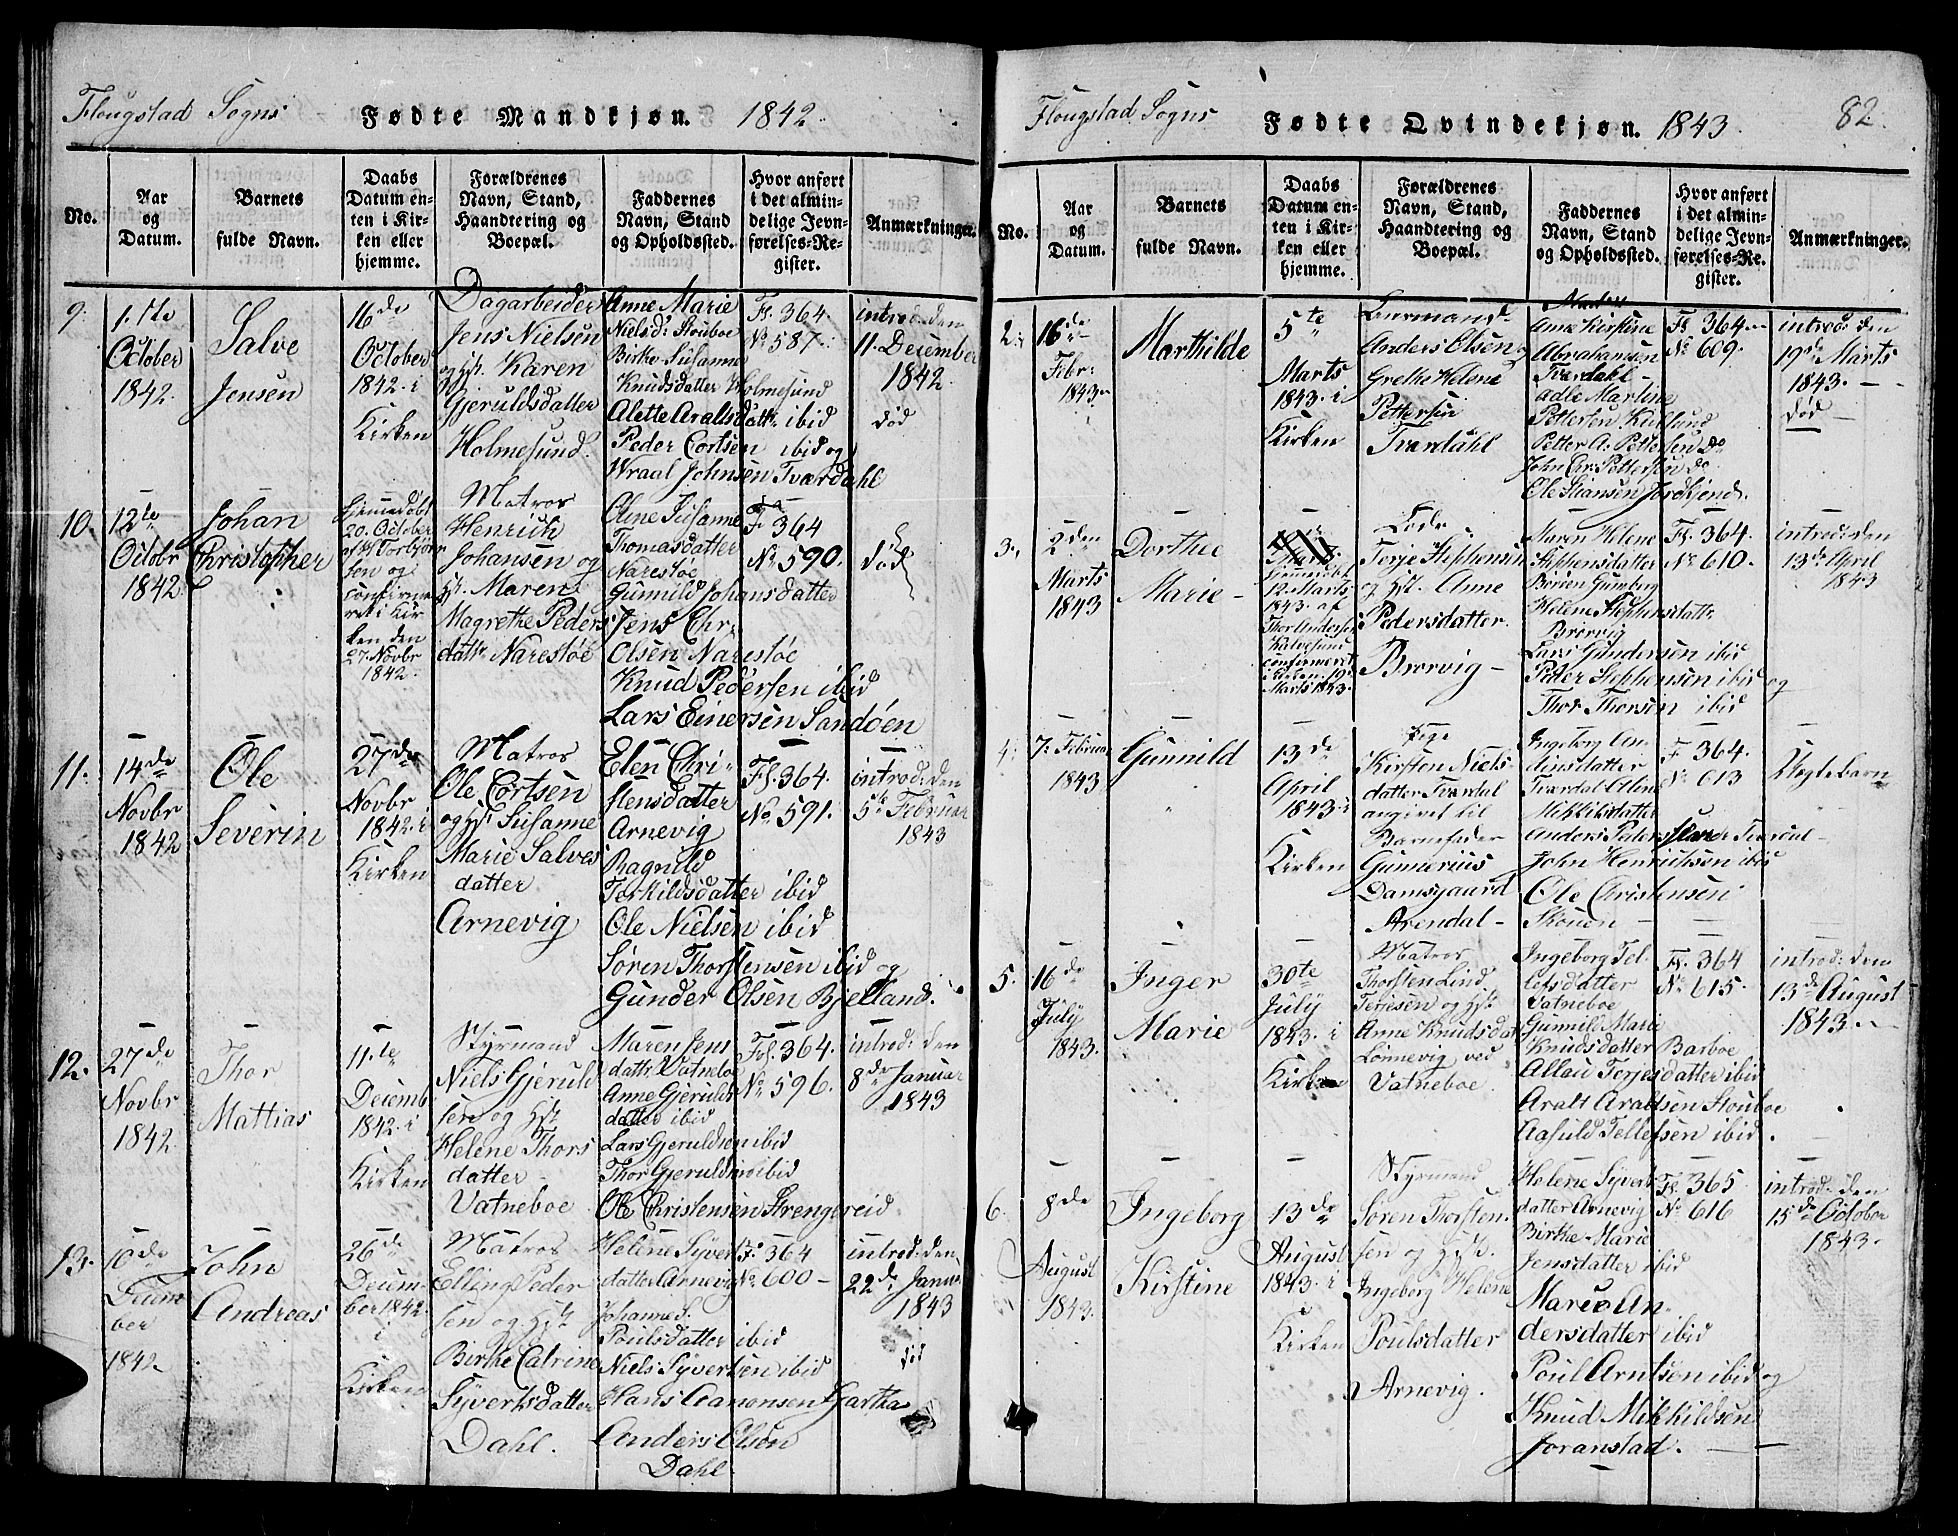 Flougstad Sogns Fødte Mandkjøn. 1842.
No.
Aar
og
Datum.
Barnets
fulde Navn.
Daabs
Datum en-
ten i Kir-
ken eller
hjemme.
Forældrenes
Navn, Stand,
Haandtering og
Boepæl.
Faddernes
Navn, Stand
og Opholdssted.
Hvor anført
i det almin-
delige Jevn-
førelses-Re-
gister.
Anmærkninger.
9.
1.ste
October
1842.
Salve
Jensen
16de
October
1842. i
Kirken
Dagarbeider
Jens Nielsen
og Hst. Karen
Gjeruldsdatter
Holmesund.
Anne Marie
Nielsd: Stouboe
Birke Susanne
Knudsdatter Holmesund
Alette Araltsdattr ibid
Peder Cortsen ibid og
Wraal Johnsen Tværdahl
Fl. 364.
No 587.
introd: den
11. December
1842.
død
10.
12te
Octobr
1842.
Johan
Christopher
hjemmedøbt
20. October
sen og
confirme
ret i Kir
ken den
27. Novbr
1842.
Matros
Henrich
Johansen og
Hst. Maren
Magrethe Peders
dattr Narestøe
Oline Susanne
Thomasdatter
Narestøe
Gunnild Johansdatter
Jens Chr.
Olsen Narestøe
Knud Pedersen ibid
Lars Einersen Sandøen
Fl. 364
No 590.
død
11.
14de
Novbr
1842
Ole
Severin
27de
Novbr
1842. i
Kirken
Matros
Ole Cortsen
og Hst Susanne
Marie Salves
datter
Arnevig
Elen Chri-
stensdatter
Arnevig
Ragnild
Torkildsdatter ibid
Ole Nielsen ibid
Søren Thorstensen ibid og
Gunder Olsen Bjelland.
Fl. 364.
No 591.
introd: den
5te Februar
1843
12.
27de
Novbr
1842.
Thor
Mattias
11.te
Decemb
1842. i
Kirken
Styrmand
Niels Gjeruld
sen og Hst
Helene Thors
datter
Vatneboe
Maren Jens
dattr Vatneboe
Anne Gjerulds
datter ibid
Lars Gjeruldsen ibid
Thor Gjeruldsen ibid
Ole Christensen Strengereid
Fl. 364.
No 596.
introd: den
8de Januar
1843
13.
10de
Decem
ber
1842.
John
Andreas
26de
Decem-
ber 1842.
i
Kirken
Matros
Elling Peder
sen og Hst
Birthe Catrine
Syvertsdatter
Dahl.
Helene Syverts
datter Arnevig
Johanne
Poulsdatter ibid
Niels Syvertsen ibid
Hans Aamonsen Gjartha
Anders Olson
Dahl.
Fl. 364
No. 600
introd: den
22de Januar
1843
død
Flougstad Sogns Fødte Qvindekjøn. 1843. 82.
No.
Aar
og
Datum.
Barnets
fulde Navn.
Daabs
Datum en-
ten i Kir-
ken eller
hjemme.
Forældrenes
Navn, Stand,
Haandtering og
Boepæl.
Faddernes
Navn, Stand
og Opholdssted.
Hvor anført
i det almin-
delige Jevn-
førelses-Re-
gister.
Anmærkninger.
2.
16de
Febr:
1843
Marthilde
5te
Marts
1843. i
Kirken
Anders Olsen og
Grethe Helene
Pettersen
Tværdahl
Anne Kirstine
Abrahamsen
Tværdahl
Adle Martine
Pettersen
Petter A. Pettersen do
John Chr. Pettersen do.
Ole Stiansen
Fl. 364
No 609.
introd: den
19de Marts
1843.
død
3.
2den
Marts
1843
Dorthe
Marie
hjemmedøbt
12. Marts
1843. af
Thor Anderse
Kalvesund
confirmeret
i Kirken. 19.
Marts 1843.
Lods
Terje Stephensen
og Hst. Anne
Pedersdatter.
Brorvig
Maren Helene
Stephensdatter
Helene Stephensdattr
Brorvig
Lars Gundersen ibid
Peder Stephensen ibid og
Thor Thorsen ibid
Fl. 364.
No 610.
introd: den
13de April
1843
4.
7. Februar
1843
Gunnild
13de
April
1843. i
Kirken
Pige
Kirsten Niels-
datter Tværdal
angivet til
Barnefader
Gunnerius
Damsgaard
Arendal
Ingeborg An-
Tværdal Elline
Mikkelsdatter
John Henrichsen ibid
Ole Christensen
Skonen
F. 364.
No 613
Uægtebarn
5.
16de
July
1843.
Inger
Marie
30te
July
1843. i
Kirken
Matros
Thorsten Lind
Terjesen og Hst
Anne Knudsdat
Lønnevig ved
Vatneboe.
Ingeborg Tel-
lefsdatter
Vatneboe
Gunnild Marie
Knudsdatter Barboe
Allau Terjesdatter ibid
Aralt Araltsen Stouboe
Aasuld Tellefsen ibid.
Fl. 364
No. 615.
introd: den
13de August
1843.
6.
8de
August
1843.
Ingeborg
Kirstine
13de
August
1843. i
Kirken
Styrmand
Søren Thorsten.
sen og Hst.
Ingeborg Helene
Poulsdatter
Arnevig.
Helene Syverts
datter Arnevig
Birthe Marie
Jensdatter ibid
Maria An-
dersdatter ibid
Poul Arntsen ibid og
Knud Mikkildsen
Joranstad.
Fl. 365
No 616
introd: den
15de October
1843.